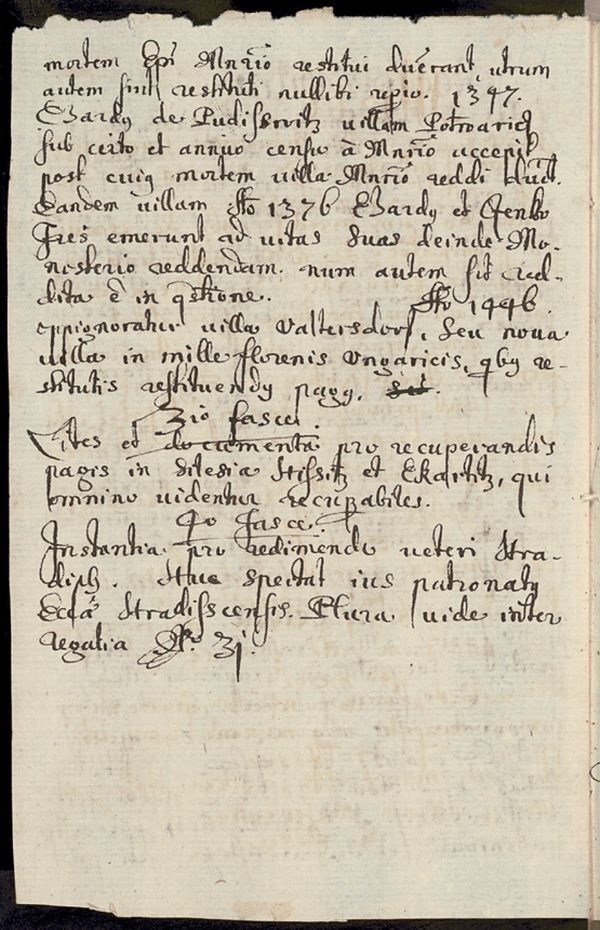 mortem Ep̄i Mnrio restitui duerant, utrum
autem sint restituti nullibi repio. 1347.
de Pudisswitz uillam
sub certo et annuo censu à Mnrio accepit
post cuiq mortem uilla Mnrio reddi
Eandem uillam Ao 1376 et Jenko
Fres emerunt ad uitas suas deinde Mo-
nasterio reddendam. num autem sit red-
dita ē in qstione. Ao 1446.
oppignoratur uilla Valtersdorf, seu noua
uilla in mille florenis Vngaricis, qbq re-
stitutis restituendq pagq.
3io fasce.
Lites et documenta pro recuperandis
pagis in Silesia Stissitz et Ekartitz, qui
omnino uidentur recupabiles.
4o Fasce.
Instantia pro redimendo ueteri Hra-
disch. Huc spectat ius patronatq
Eclae Hradisscensis. Plura uide inter
regalia N. 31.